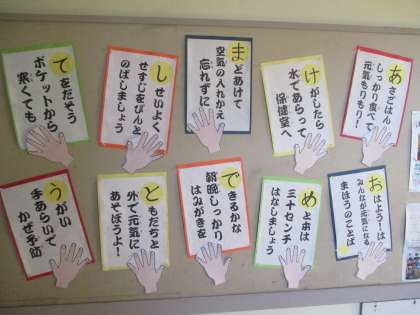 あさごはん
しっかり食べて
元気もりもり！
けがしたら
水であらって
保健室へ
まどあけて
空気の入れかえ
忘れずに
しせいよく
せすじをぴんと
のばしましょう
てをだそう
ポケットから
寒くても
おはよう！は
みんなが元気になる
まほうのことば
めと本は
三十センチ
はなしましょう
できるかな
朝晩しっかり
はみがきを
ともだちと
外で元気に
あそぼうよ！
うがい
手あらいで
かぜ予防